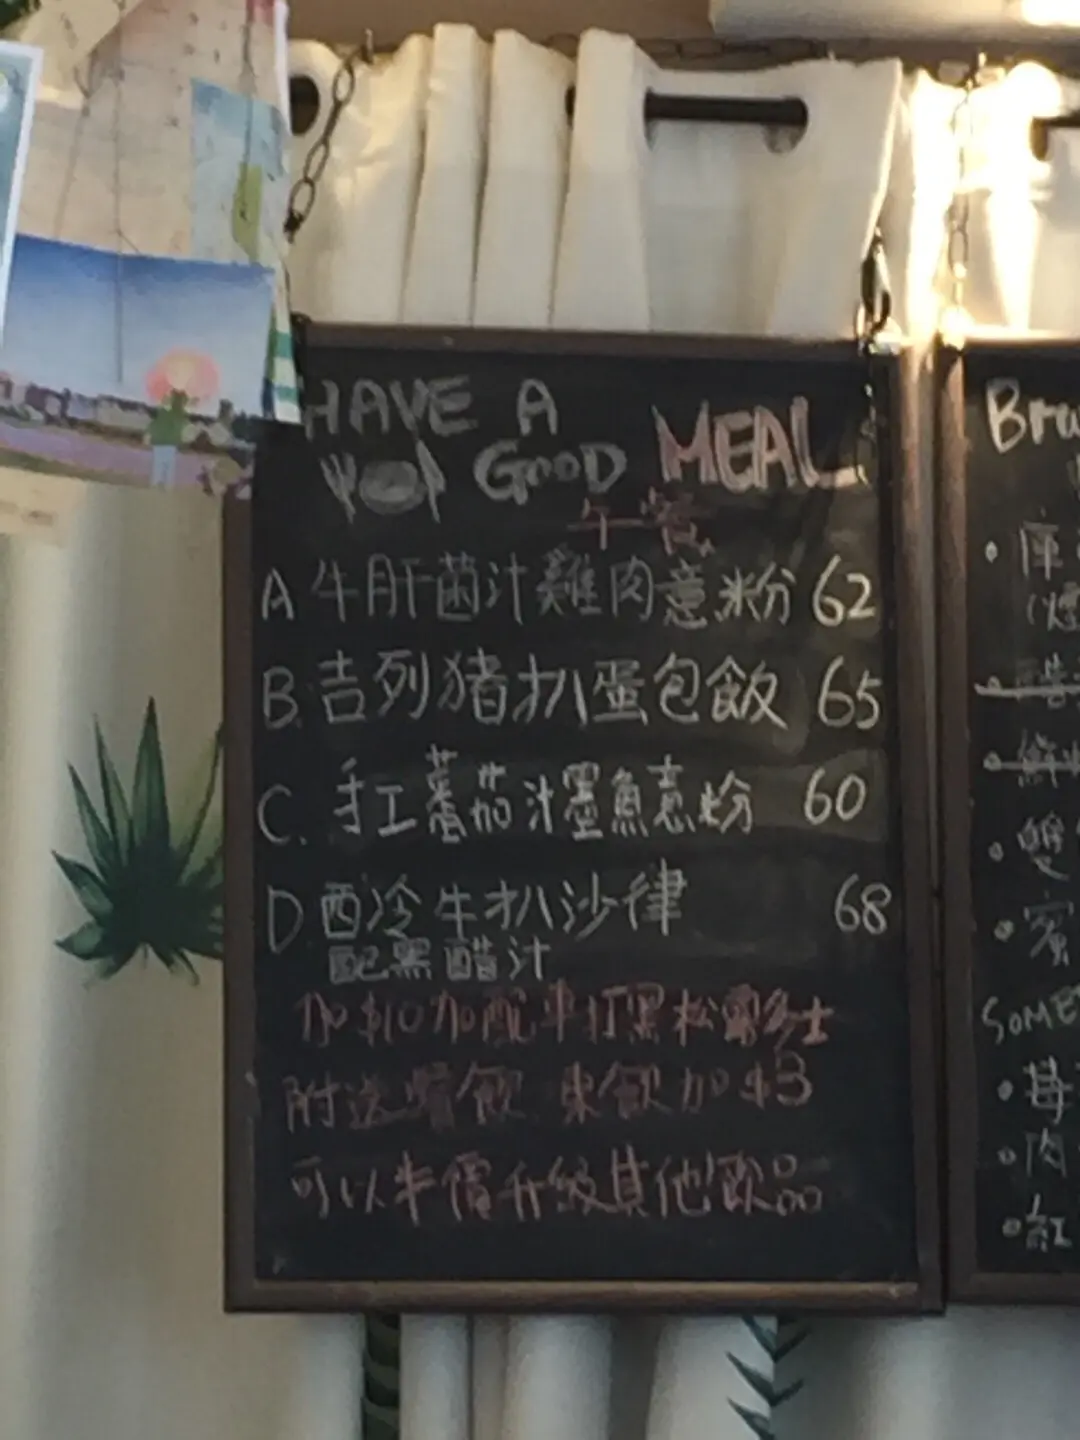 HAVE A
GOOD MEAL
午餐
A 牛肝菌汁雞肉意粉 62
B. 吉列猪扒蛋包飯 65
C. 手工蕃茄汁墨魚意粉 60
D 西冷牛扒沙律 68
配黑醋汁
加$10加配車打黑松露多士
附送餐飲 凍飲加$3
可以半價升級其他飲品
Bru
座
蜜
SOME
莓
肉
紅